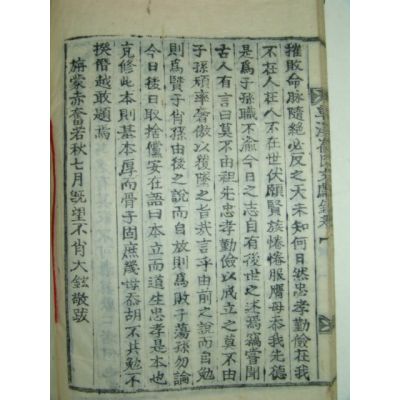 摧敗命脉隨絶必反之天未知何日然忠孝勤儉在我
不在人在人不在世伏願賢族惓惓服膺毋忝我先德
是爲子孫職不渝今日之志自有後世之述焉竊嘗聞
古人有言曰莫不由祖先忠孝勤儉以成立之莫不由
子孫頑率奢傲以覆墜之旨哉言乎由前之說而自勉
則爲賢子肖孫由後之說而自放則爲敗子蕩孫勿論
今日後日取捨儻安在語曰本立而道生忠孝是本也
克修此本則基本厚而骨子固庶幾毋忝胡不共勉不
揆僭越敢題焉
旃蒙赤奮若秋七月旣望不肖大鉉敬跋